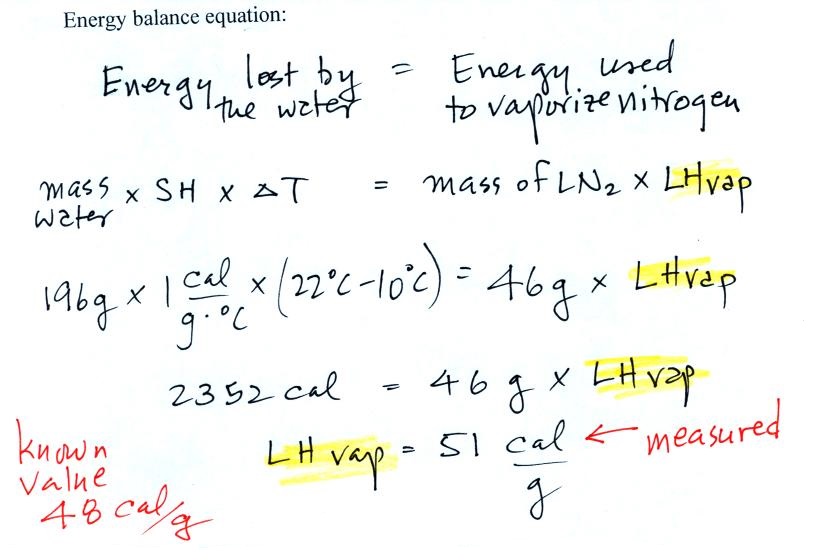 Energy balance equation:
Energy lost by the water = Energy used to vaporize nitrogen
mass water x SH x ΔT = mass of LN₂ x LHvap
196g x 1 cal/g·°C x (22°C-10°C) = 46g x LHvap
2352 cal = 46 g x LHvap
LHvap = 51 cal/g ← measured
known value 48 cal/g